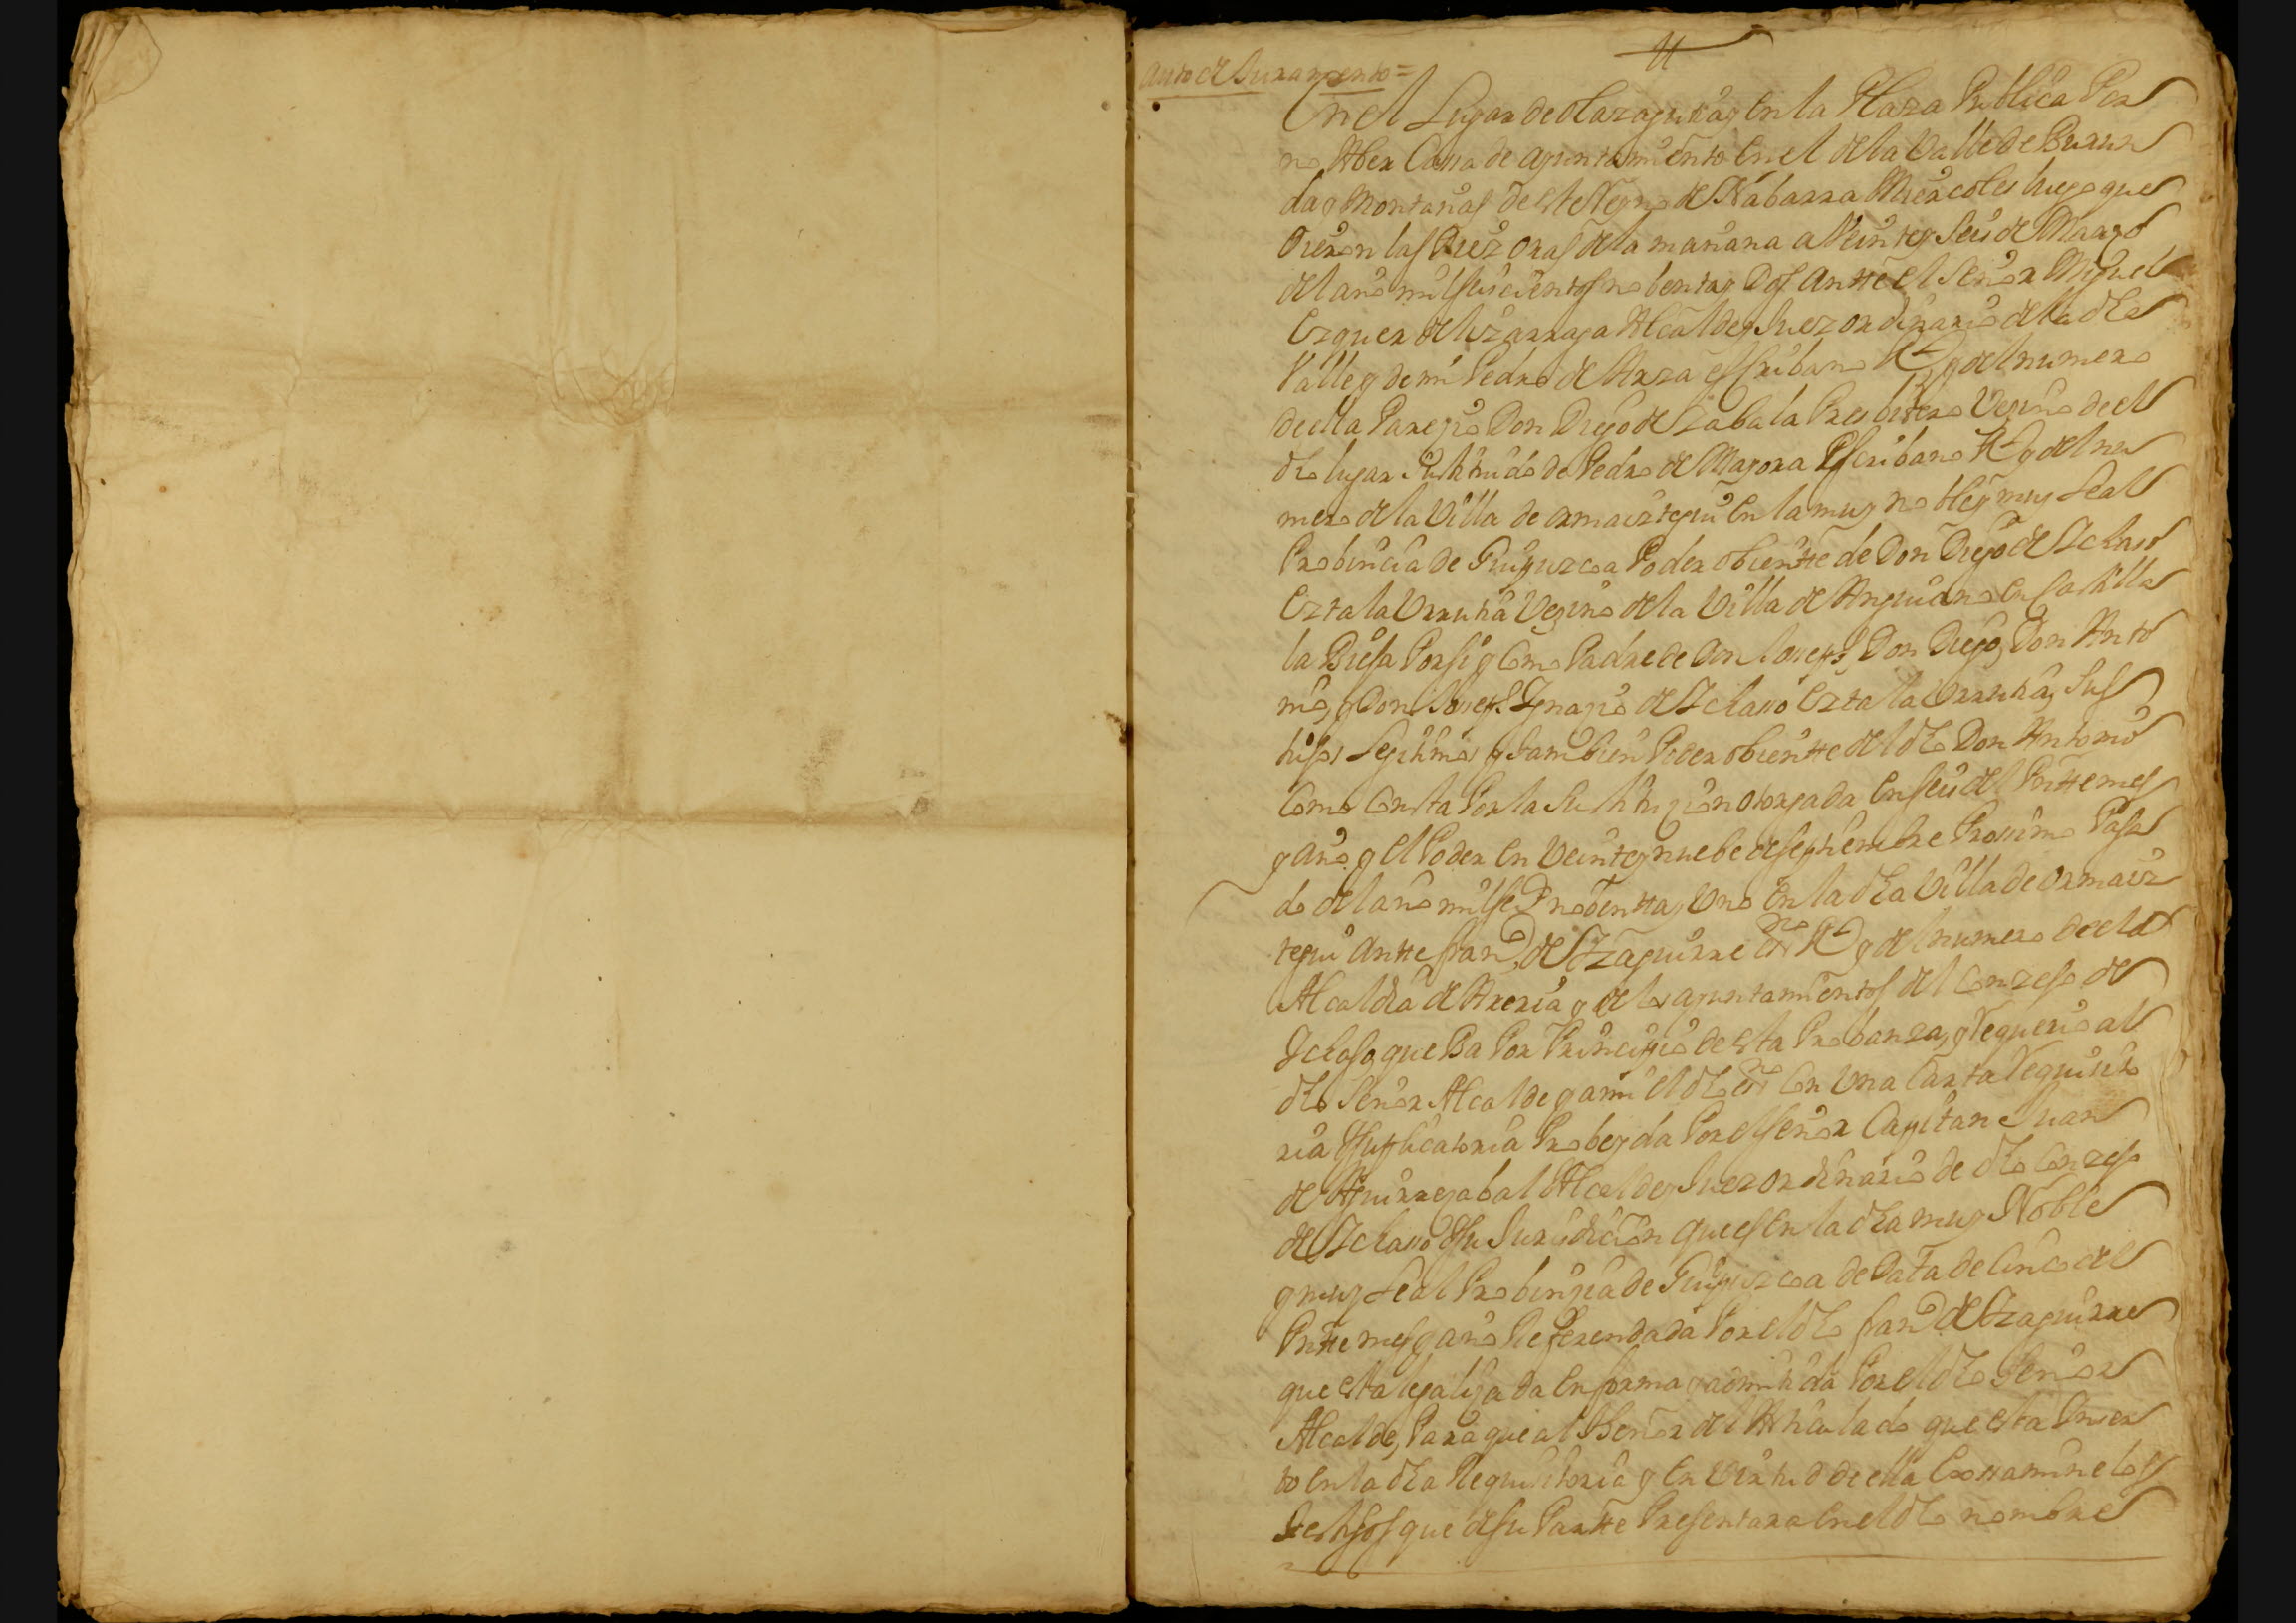 auto de Juramento =
En el Lugar de olazaguitia y En la Plaza Publica Por
no Aber Cassa de ayuntamiento En el de la Valle de Burun
da y Montañas de este Reyno de Nabarra Miercoles luego que
Dieron las Diez oras de la mañana a Veinte y seis de Marzo
del año mil seiscientos nobenta y Dos Antte el Señor Miguel
Ezquer de lizarraga Alcalde y Juez ordinario de la dha
Valle y de mi Pedro de Arza esscribano Rl y del numero
de ella Parezio Don Diego de Zabala Presbitero Vezino de el
dho lugar Sustituido de Pedro de Mayora Escribano Rl y del nu
mero de la Villa de ormaiztegui En la muy noble y muy Leal
Probincia de Guipuzcoa Poder obientte de Don Diego de Ichaso
Eztala Urrutia Vezino de la Villa de Anguiano En Castilla
la Biefa Por si y Como Padre de Don Joseph, Don Diego, Don Anto
nio, y Don Joseph Ygnazio de Ichasso Eztala Urrutia, sus
hifos Legitimos y tambien Poder obientte del dho Don Antonio
Como Consta Por la Sustituzion otorgada En seis del Pntte mes
y año, y el Poder En Veinte y nuebe de septiembre Proximo Pasa
do del año mil seis nobentta y Uno En la dha Villa de ormaiz
tegui Antte Franco de Eizaguirre esno Rl y del numero de el la
Alcaldia de Areria y de los ayuntamientos del Conzejo de
Ichaso, que Ba Por Principio de esta Probanza, y Requerio al
dho Señor Alcalde y a mi el dho esno Con Una Carta Requisito
ria Esuplicatoria Probeyda Por el señor Capitan Juan
de Aguirrezabal Alcalde y Juez ordinario de dho Conzejo
de Ichasso Esu Jurisdicion que es En la dha muy Noble
y muy Leal Probinzia de Guipuzcoa de Data de Cinco del
Pntte mes y año Referendada Por el dho Franco de Eizaguirre
que esta legalizada En forma y admitida Por el dho Señor
Alcalde, Para que al Thenor del Articulado que esta Inser
to En la dha Requisitoria y En Virtud de ella Exssamine los
Testigos que de su Partte Presentara En el dho nombre